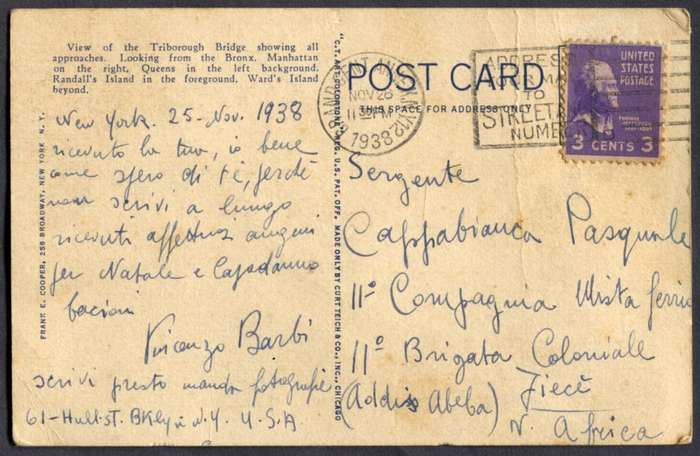 View of the Triborough Bridge showing all
approaches. Looking from the Bronx. Manhattan
on the right, Queens in the left background.
Randall's Island in the foreground, Ward's Island
beyond.
New York. 25-Nov. 1938
ricevuto la tua, io bene
come spero di te, perchè
non scrivi a lungo
ricevuti affettuosi auguri
per Natale e Capodanno
bacioni
Vincenzo Barbi
scrivi presto manda fotografie
61-Hull st. Bklyn N.Y. U.S.A
FRANK E. COOPER, 256 BROADWAY, NEW YORK, N. Y.
REG. U.S. PAT. OFF. MADE ONLY BY CURT TEICH & CO., INC., CHICAGO
POST CARD
THIS SPACE FOR ADDRESS ONLY
GRAND
NOV 28
1938
ADDRESS
TO
STREET
NUMB
UNITED
STATES
POSTAGE
THOMAS
JEFFERSON
3 CENTS 3
Sergente
Cappabianca Pasquale
11º Compagnia Mista
11º Brigata Coloniale
(Addis Abeba)
A. Africa